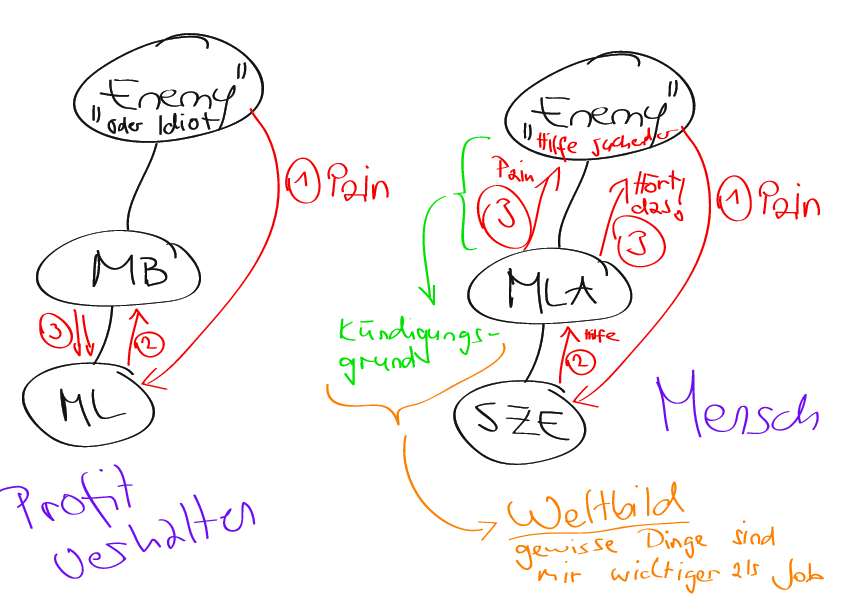 "Enemy"
oder Idiot
① Pain
MB
③
②
ML
Profit
verhalten
"Enemy"
Hilfe suchender
Pain
③
Hört
das!
③
① Pain
MLA
Hilfe
②
SZE
Kündigungs-
grund
Mensch
Weltbild
gewisse Dinge sind
mir wichtiger als Job